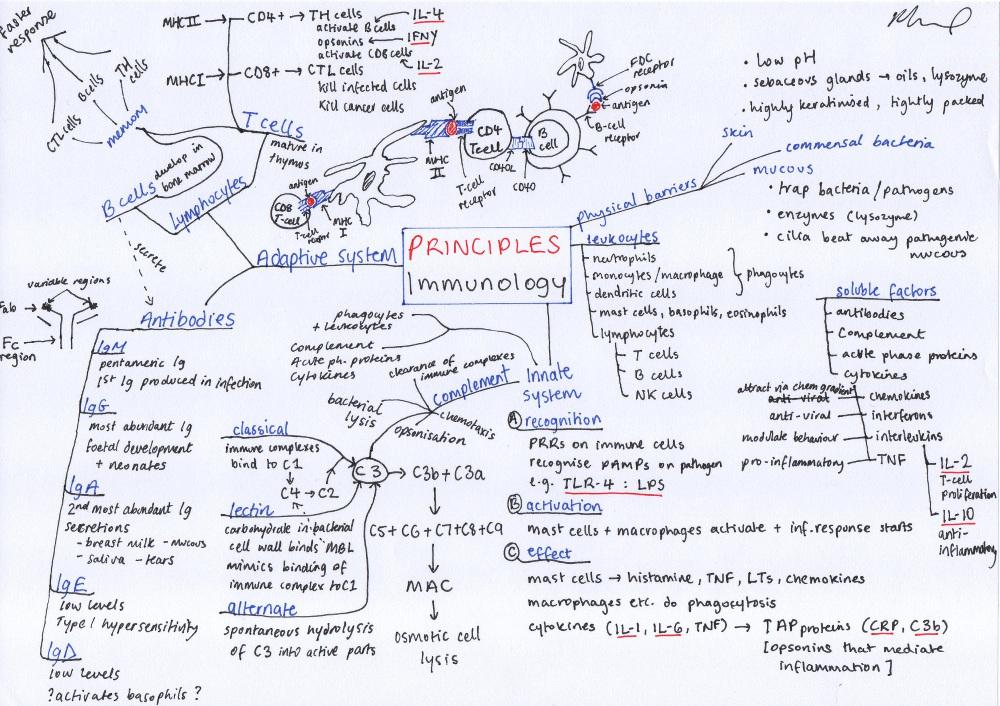 Faster
response
B cells
TH
cells
CTL cells
memory
MHC II → CD4+ → TH cells
activate B cells
opsonins
activate CD8 cells
IL-4
IFNγ
IL-2
MHC I → CD8+ → CTL cells
kill infected cells
kill cancer cells
T cells
mature in
thymus
B cells
develop in
bone marrow
Lymphocytes
secrete
Adaptive system
antigen
CD8
T-cell
T-cell
receptor
MHC
I
antigen
MHC
II
CD4
Tcell
T-cell
receptor
CD40L
CD40
B
cell
FDC
receptor
opsonin
antigen
B-cell
receptor
PRINCIPLES
Immunology
physical barriers
skin
• low pH
• sebaceous glands → oils, lysozyme
• highly keratinised, tightly packed
commensal bacteria
mucous
• trap bacteria/pathogens
• enzymes (lysozyme)
• cilia beat away pathogenic
mucous
leukocytes
neutrophils
monocytes/macrophage
dendritic cells
phagocytes
mast cells, basophils, eosinophils
lymphocytes
T cells
B cells
NK cells
soluble factors
antibodies
complement
acute phase proteins
cytokines
attract via chem gradient
anti-viral
chemokines
anti-viral
interferons
modulate behaviour
interleukins
pro-inflammatory
TNF
IL-2
T-cell
proliferation
IL-10
anti-
inflammatory
variable regions
Fab
Fc
region
Antibodies
IgM
pentameric Ig
1st Ig produced in infection
IgG
most abundant Ig
foetal development
+ neonates
IgA
2nd most abundant Ig
secretions
- breast milk - mucous
- saliva - tears
IgE
low levels
Type 1 hypersensitivity
IgD
low levels
? activates basophils ?
phagocytes
+ leukocytes
Complement
Acute ph. proteins
Cytokines
Innate
system
complement
clearance of
immune complexes
chemotaxis
opsonisation
bacterial
lysis
classical
immune complexes
bind to C1
C4 → C2
lectin
carbohydrate in bacterial
cell wall binds MBL
mimics binding of
immune complex to C1
alternate
spontaneous hydrolysis
of C3 into active parts
C3 → C3b + C3a
C5 + C6 + C7 + C8 + C9
MAC
osmotic cell
lysis
A recognition
PRRs on immune cells
recognise PAMPs on pathogen
e.g. TLR-4 : LPS
B activation
mast cells + macrophages activate + inf. response starts
C effect
mast cells → histamine, TNF, LTs, chemokines
macrophages etc. do phagocytosis
cytokines (IL-1, IL-6, TNF) → ↑ AP proteins (CRP, C3b)
[opsonins that mediate
inflammation]